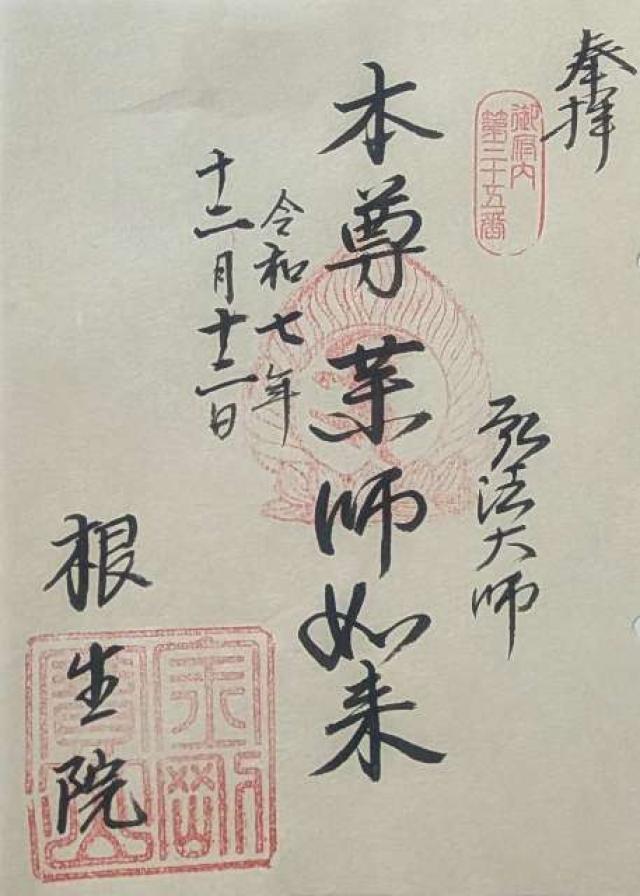 奉拝
御府内
第三十五番
弘法大師
本尊薬師如来
令和七年
十二月十二日
根生院
金剛
宝山